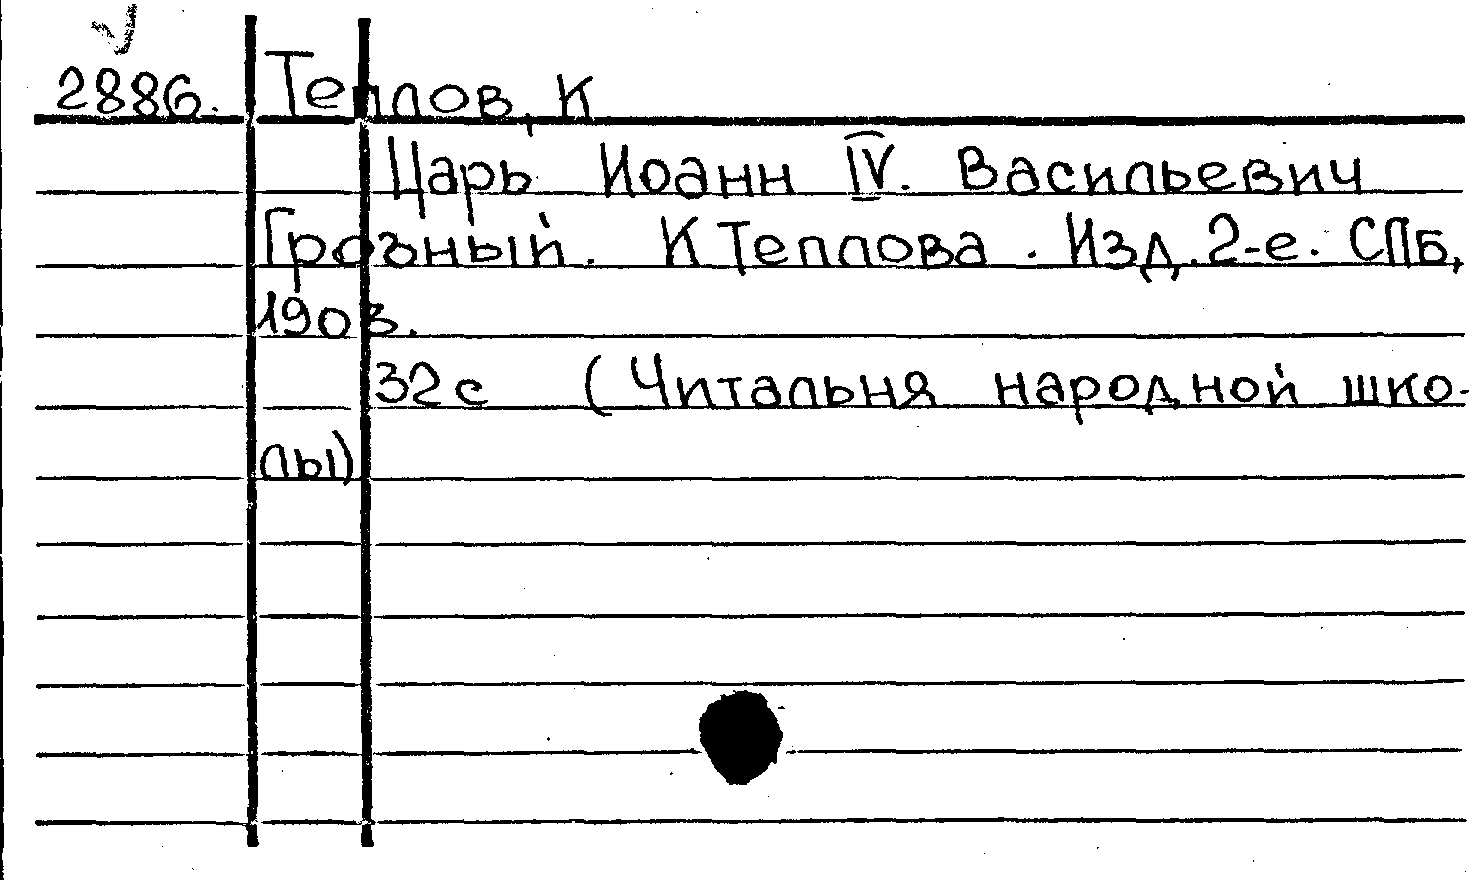 2886. Теплов, К
Царь Иоанн IV. Васильевич
Грозный. К Теплова. Изд. 2-е. СПб,
1903.
32с (Читальня народной шко-
лы)